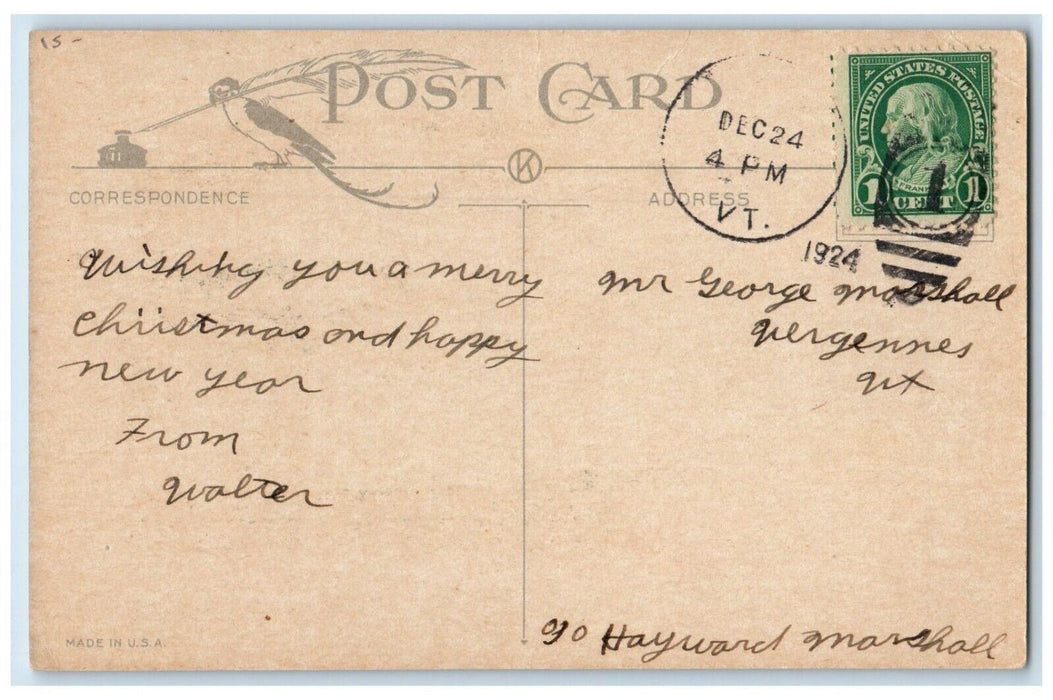 15-
POST CARD
DEC 24
4 PM
VT.
1924
UNITED STATES POSTAGE
FRANKLIN
1 CENT 1
1
K
CORRESPONDENCE
ADDRESS
Wishing you a merry
Christmas and happy
new year
From
Walter
Mr George Marshall
Vergennes
Vt
c/o Hayward Marshall
MADE IN U.S.A.